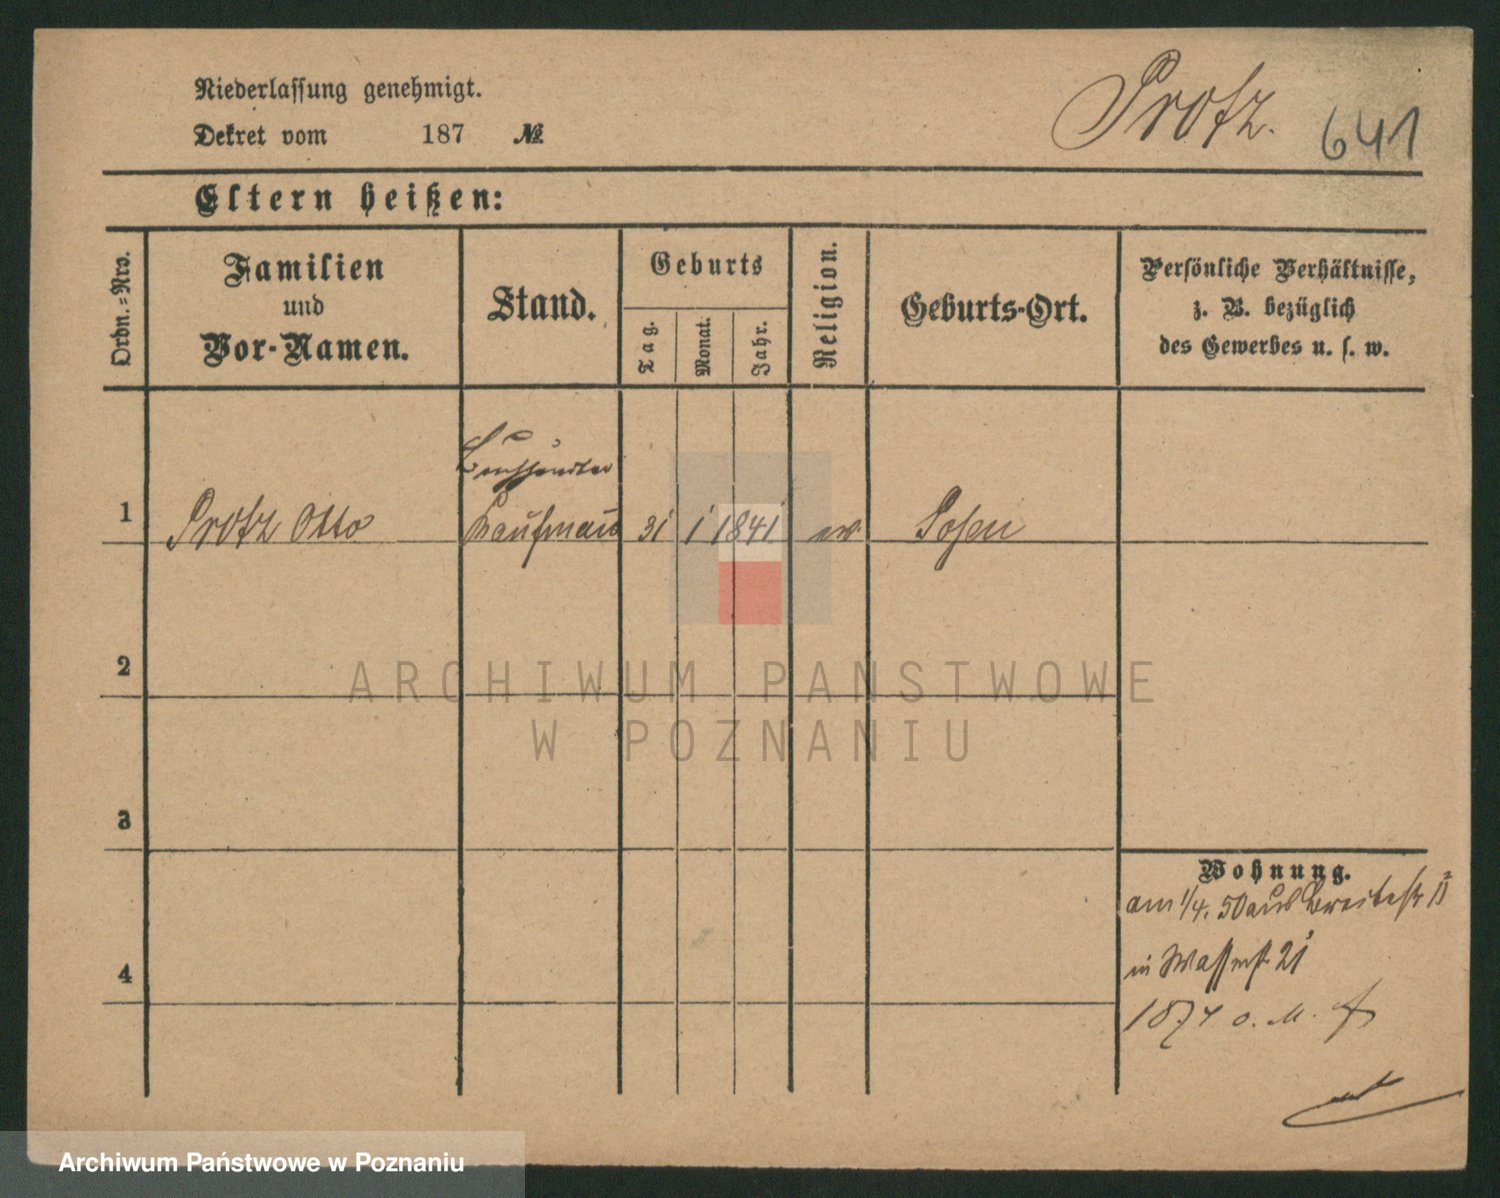 Niederlassung genehmigt.
Dekret vom 187 №
Protz. 641
Eltern heißen:
Ordn.-Nro.
Familien
und
Vor-Namen.
Stand.
Geburts
Tag.
Monat.
Jahr.
Religion.
Geburts-Ort.
Persönliche Verhältnisse,
z. B. bezüglich
des Gewerbes u. s. w.
1 Protz Otto Kaufmann 31 1 1841 ev. Posen
2
3
4
Wohnung.
am 1/4. 50 aus Breitestr 11
in Wasserstr 21
1874 o. M.
ARCHIWUM PAŃSTWOWE
W POZNANIU
Archiwum Państwowe w Poznaniu